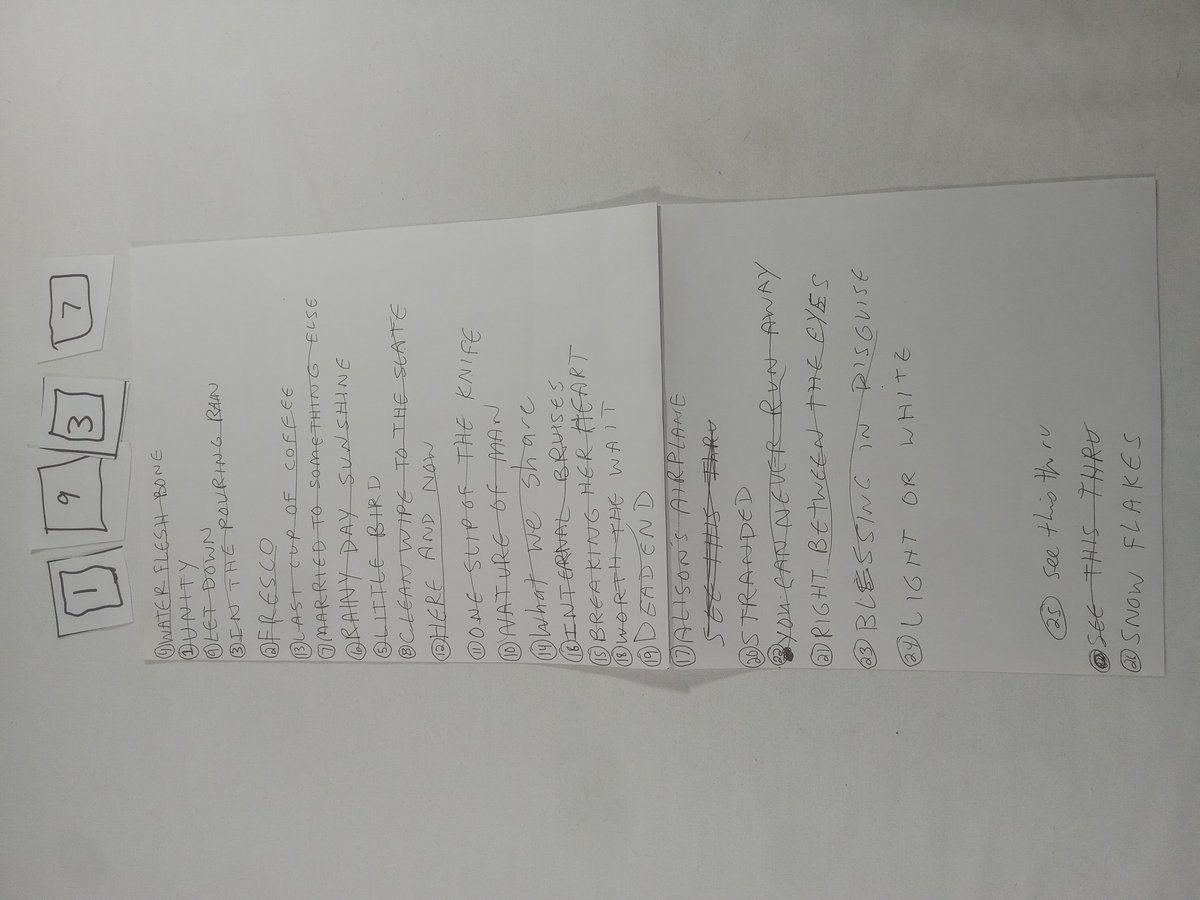 1
9
3
7
④ WATER FLESH BONE
① UNITY
⑨ LET DOWN
③ IN THE POURING RAIN
② FRESCO
⑬ LAST CUP OF COFFEE
⑦ MARRIED TO SOMETHING ELSE
⑥ RAINY DAY SUNSHINE
⑤ LITTLE BIRD
⑧ CLEAN WIPE TO THE SLATE
⑫ HERE AND NOW
⑪ ONE SLIP OF THE KNIFE
⑩ NATURE OF MAN
⑭ What we share
⑯ INTERNAL BRUISES
⑮ BREAKING HER HEART
⑱ WORTH THE WAIT
⑲ DEADEND
⑰ ALISON'S AIRPLANE
SEE THIS THRU
⑳ STRANDED
㉒ YOU CAN NEVER RUN AWAY
㉑ RIGHT BETWEEN THE EYES
㉓ BLESSING IN DISGUISE
㉔ LIGHT OR WHITE
㉕ see this thru
SEE THIS THRU
㉖ SNOW FLAKES